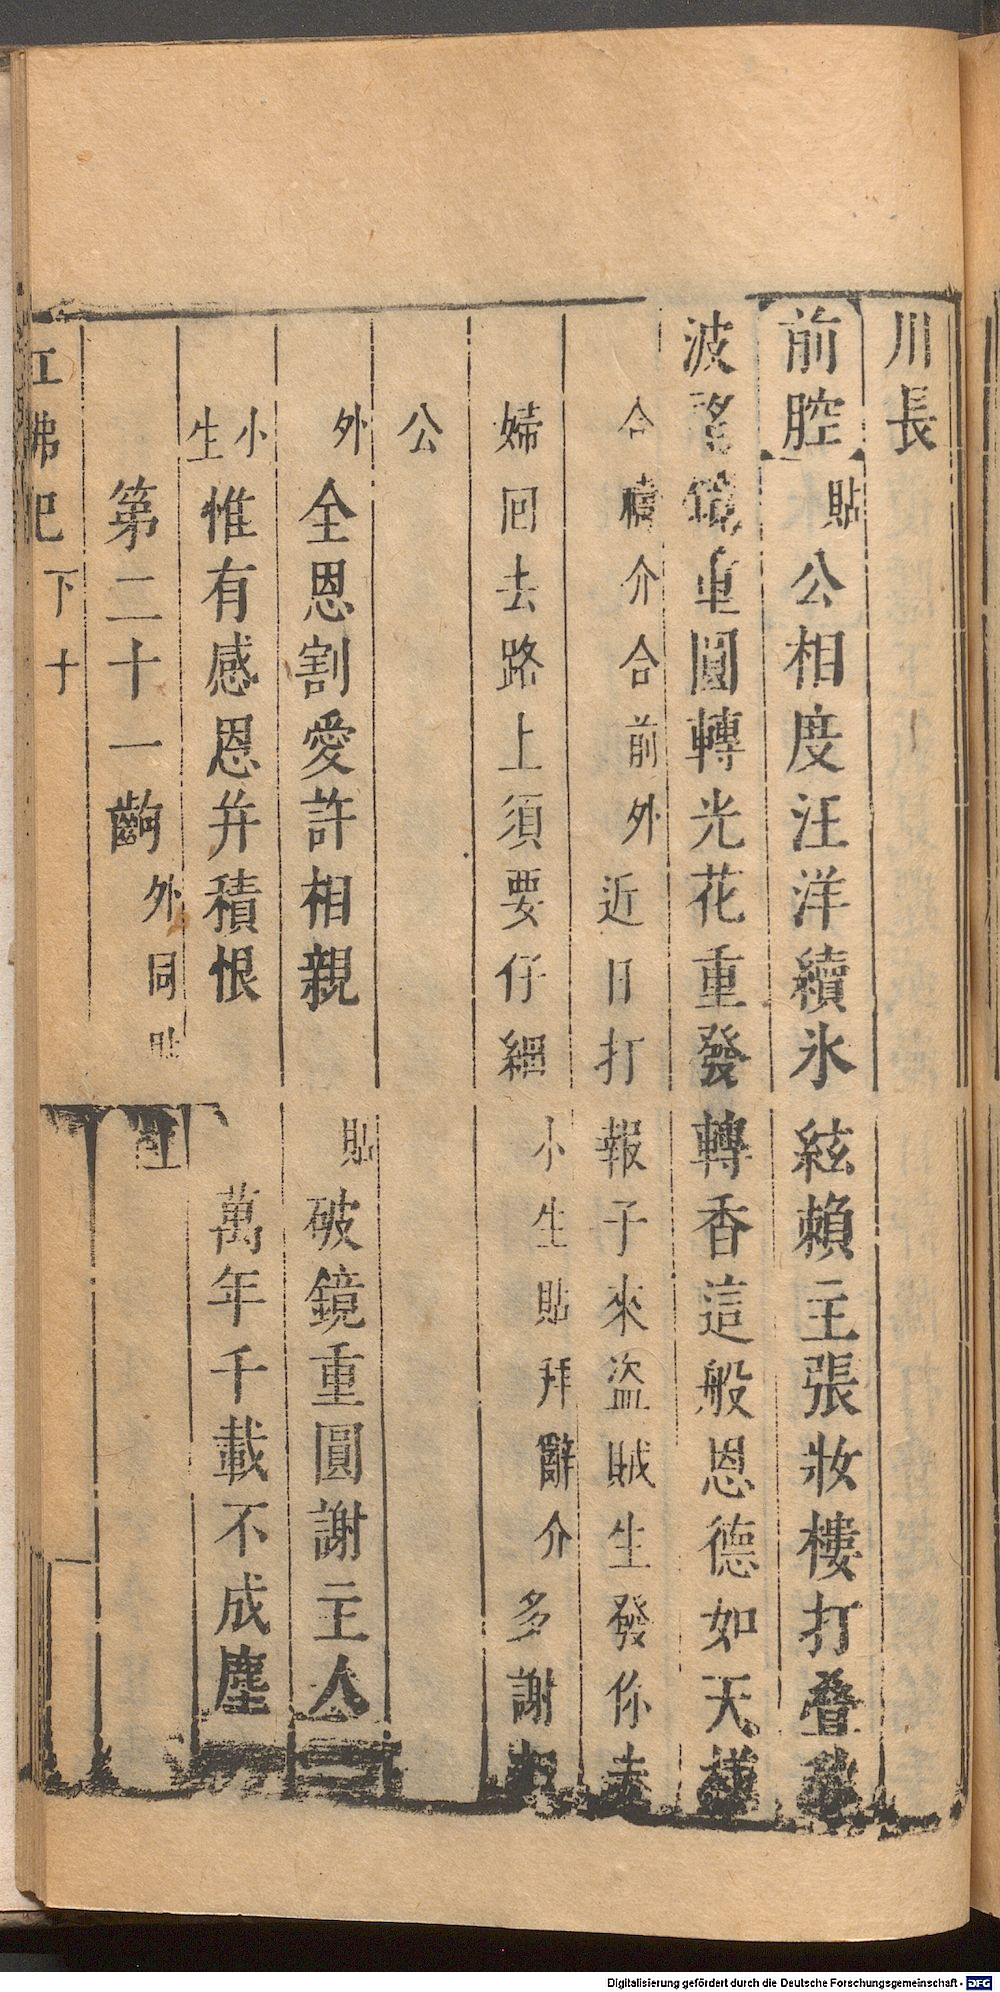 川長
前腔 貼 公相度汪洋續氷絃賴主張妝樓打疊
波鏡重圓轉光花重發轉香這般恩德如天樣
合 介合前外近日打報子來盜賊生發你夫
婦回去路上須要仔細小生貼拜辭介多謝相
公
外 全恩割愛許相親 貼 破鏡重圓謝主人
小生 惟有感恩并積恨 萬年千載不成塵
第二十一齣 外同貼
紅拂記 下 十
Digitalisierung gefördert durch die Deutsche Forschungsgemeinschaft - DFG